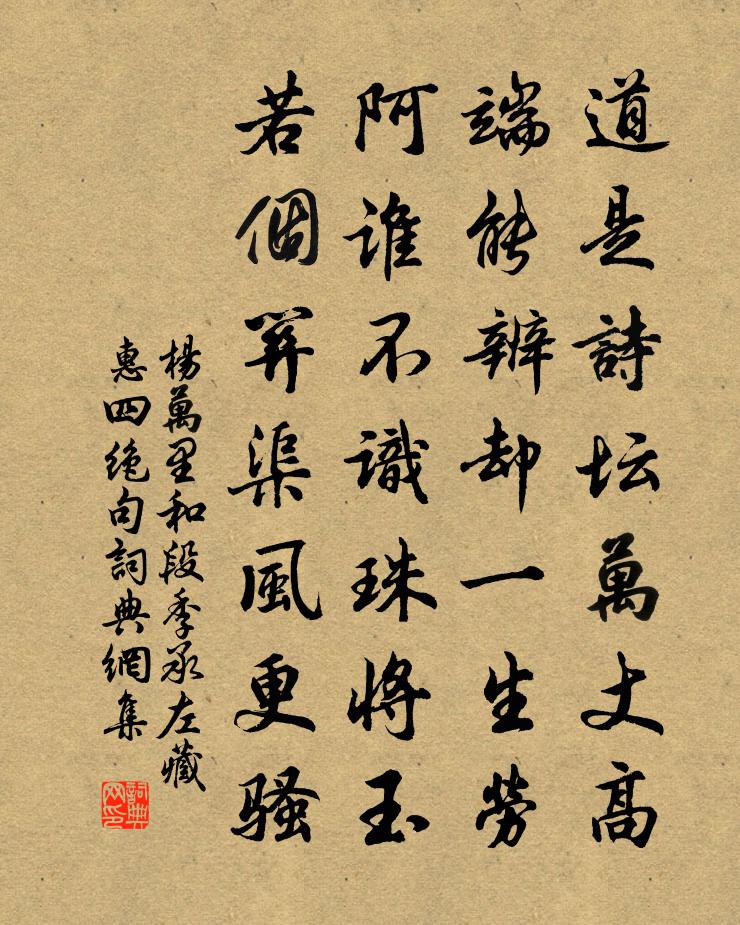 道是詩坛萬丈高
端能辨却一生勞
阿誰不識珠將玉
若個關渠風更骚
楊萬里和段季承左藏
惠四絶句詞典網集
詞典
网印